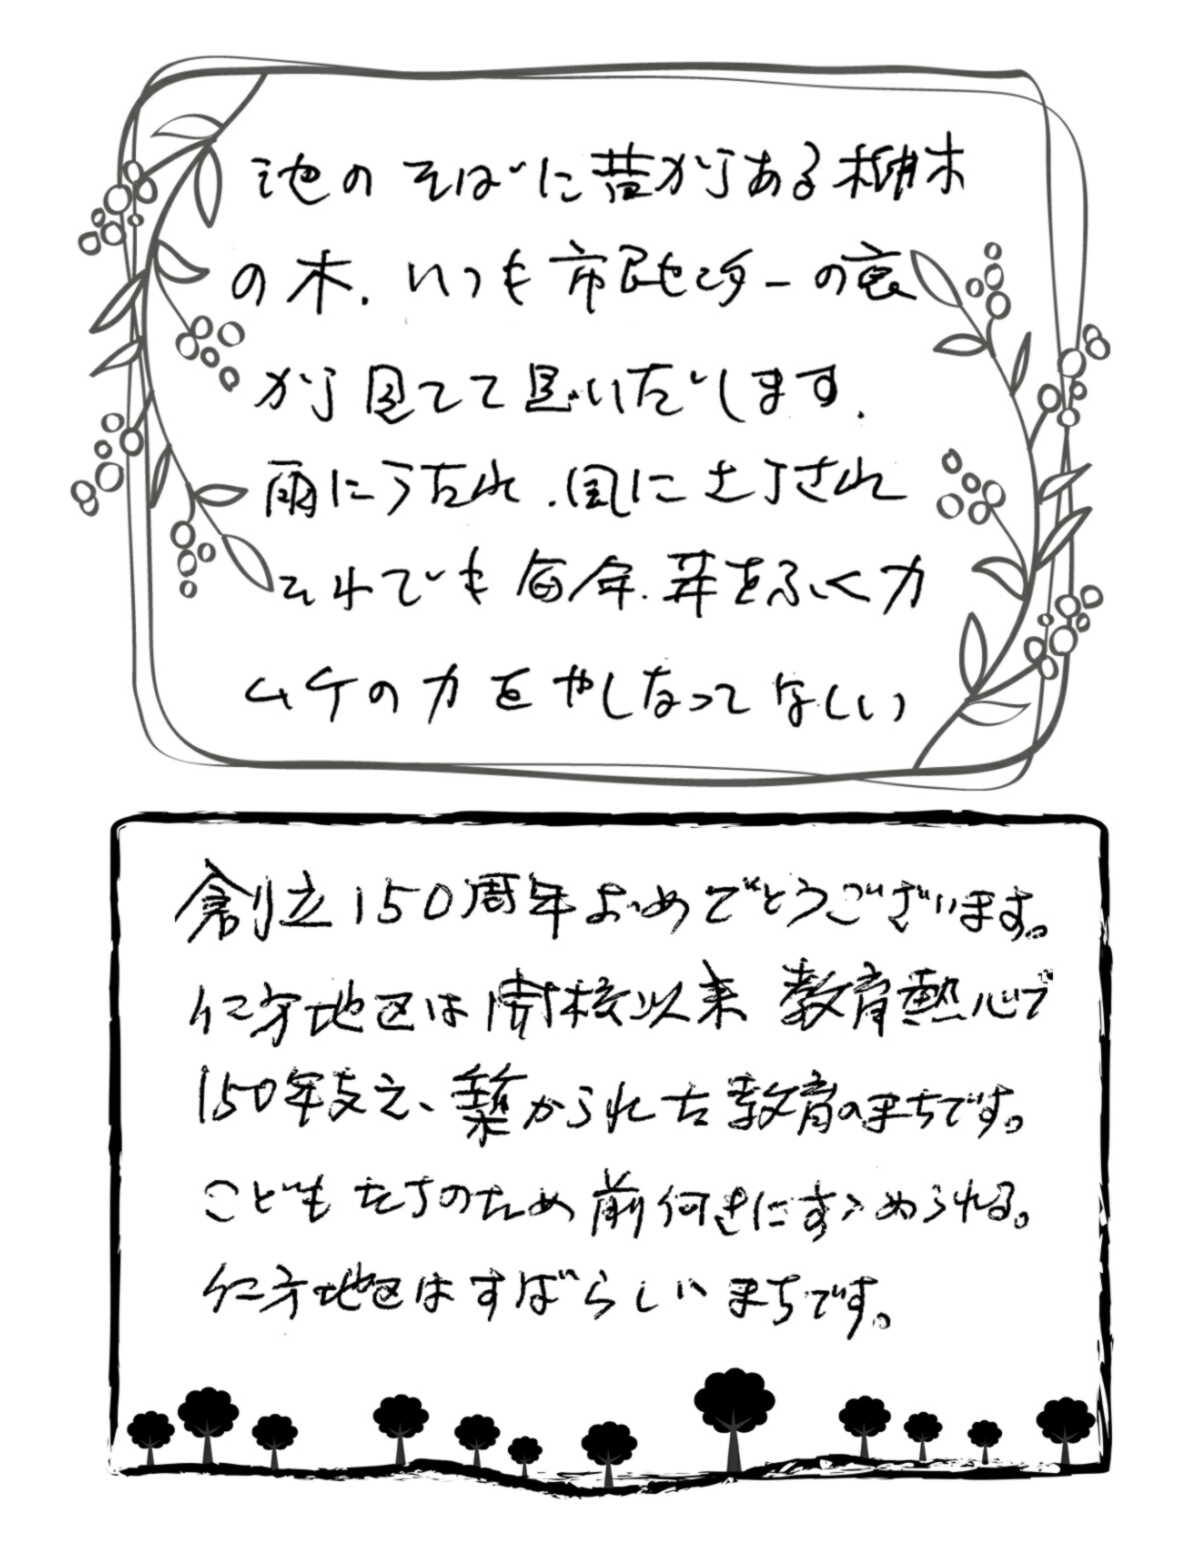 池のそばに昔からある栴木
の木、いつも市民センターの窓
から見てて思いだします。
雨にうたれ、風にさらされ
それでも毎年、芽をふく力
ムケの力をやしなってほしい
創立150周年おめでとうございます。
仁方地区は開校以来 教育熱心で
150年支え、築かられた教育のまちです。
こどもたちのため前向きにすゝめられる。
仁方地区はすばらしいまちです。